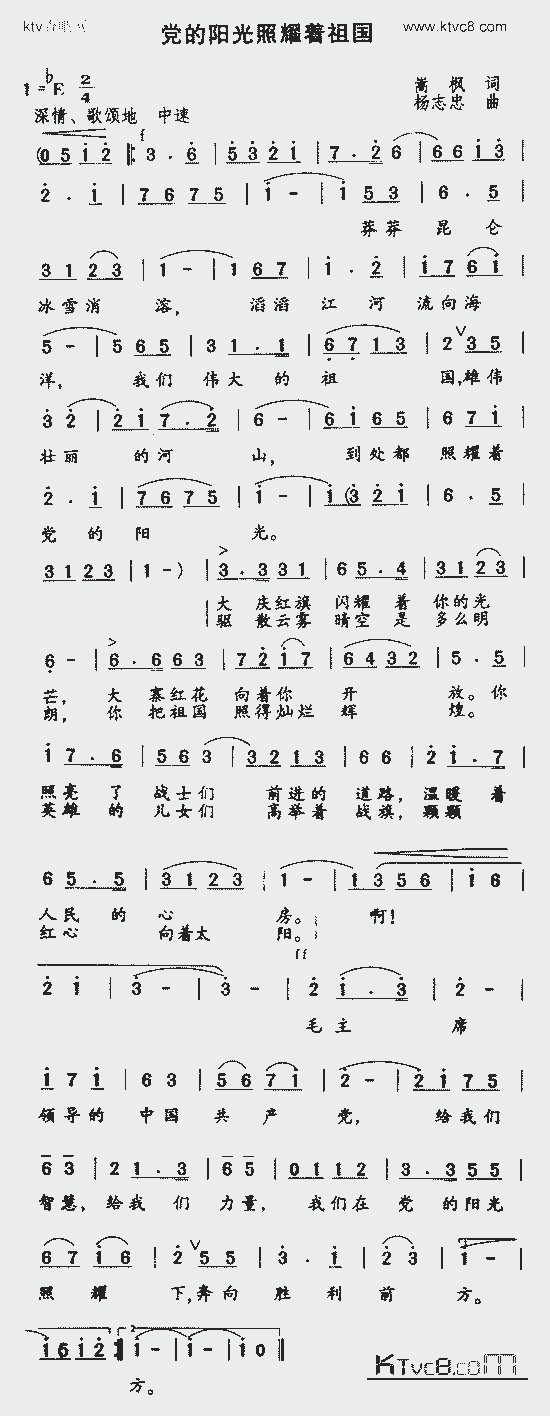 ktv 合唱网
党的阳光照耀着祖国
www.ktvc8 com
1=♭E 2/4
嵩枫 词
杨志忠 曲
深情、歌颂地 中速
f
(0 5 1 2 |: 3 . 6 | 5 3 2 1 | 7 . 2 6 | 6 6 1 3 |
2 . 1 | 7 6 7 5 | 1 - | 1 5 3 | 6 . 5 |
莽莽 昆 仑
3 1 2 3 | 1 - | 1 6 7 | 1 . 2 | 1 7 6 1 |
冰雪消 溶, 滔滔 江 河 流向海
5 - | 5 6 5 | 3 1 . 1 | 6 7 1 3 | 2 ∨ 3 5 |
洋, 我们 伟大 的 祖 国,雄伟
3 2 | 2 1 7 . 2 | 6 - | 6 1 6 5 | 6 7 1 |
壮丽 的河 山, 到处都 照耀着
2 . 1 | 7 6 7 5 | 1 - | 1 (3 2 1 | 6 . 5 |
党 的 阳 光。
3 1 2 3 | 1 - ) | 3 . 3 3 1 | 6 5 . 4 | 3 1 2 3 |
大 庆红旗 闪耀 着 你的光
驱 散云雾 晴空 是 多么明
6 - | 6 . 6 6 3 | 7 2 1 7 | 6 4 3 2 | 5 . 5 |
芒, 大 寨红花 向着你 开 放。你
朗, 你 把祖国 照得灿烂 辉 煌。
1 7 . 6 | 5 6 3 | 3 2 1 3 | 6 6 | 2 1 . 7 |
照亮 了 战士们 前进的 道路, 温暖 着
英雄 的 儿女们 高举着 战旗, 颗颗
6 5 . 5 | 3 1 2 3 | 1 - | 1 3 5 6 | 1 6 |
人民 的 心 房。 啊!
红心 向着太 阳。
ff
2 1 | 3 - | 3 - | 2 1 . 3 | 2 - |
毛 主 席
1 7 1 | 6 3 | 5 6 7 1 | 2 - | 2 1 7 5 |
领导的 中国 共 产 党, 给我们
6 3 | 2 1 . 3 | 6 5 | 0 1 1 2 | 3 . 3 5 5 |
智慧, 给我 们 力量, 我们在 党 的阳光
6 7 1 6 | 2 ∨ 5 5 | 3 . 1 | 2 3 | 1 - |
照 耀 下,奔向 胜 利 前 方。
1 6 1 2 :| 1 - | 1 - | 1 0 ‖
方。
KTvc8.com